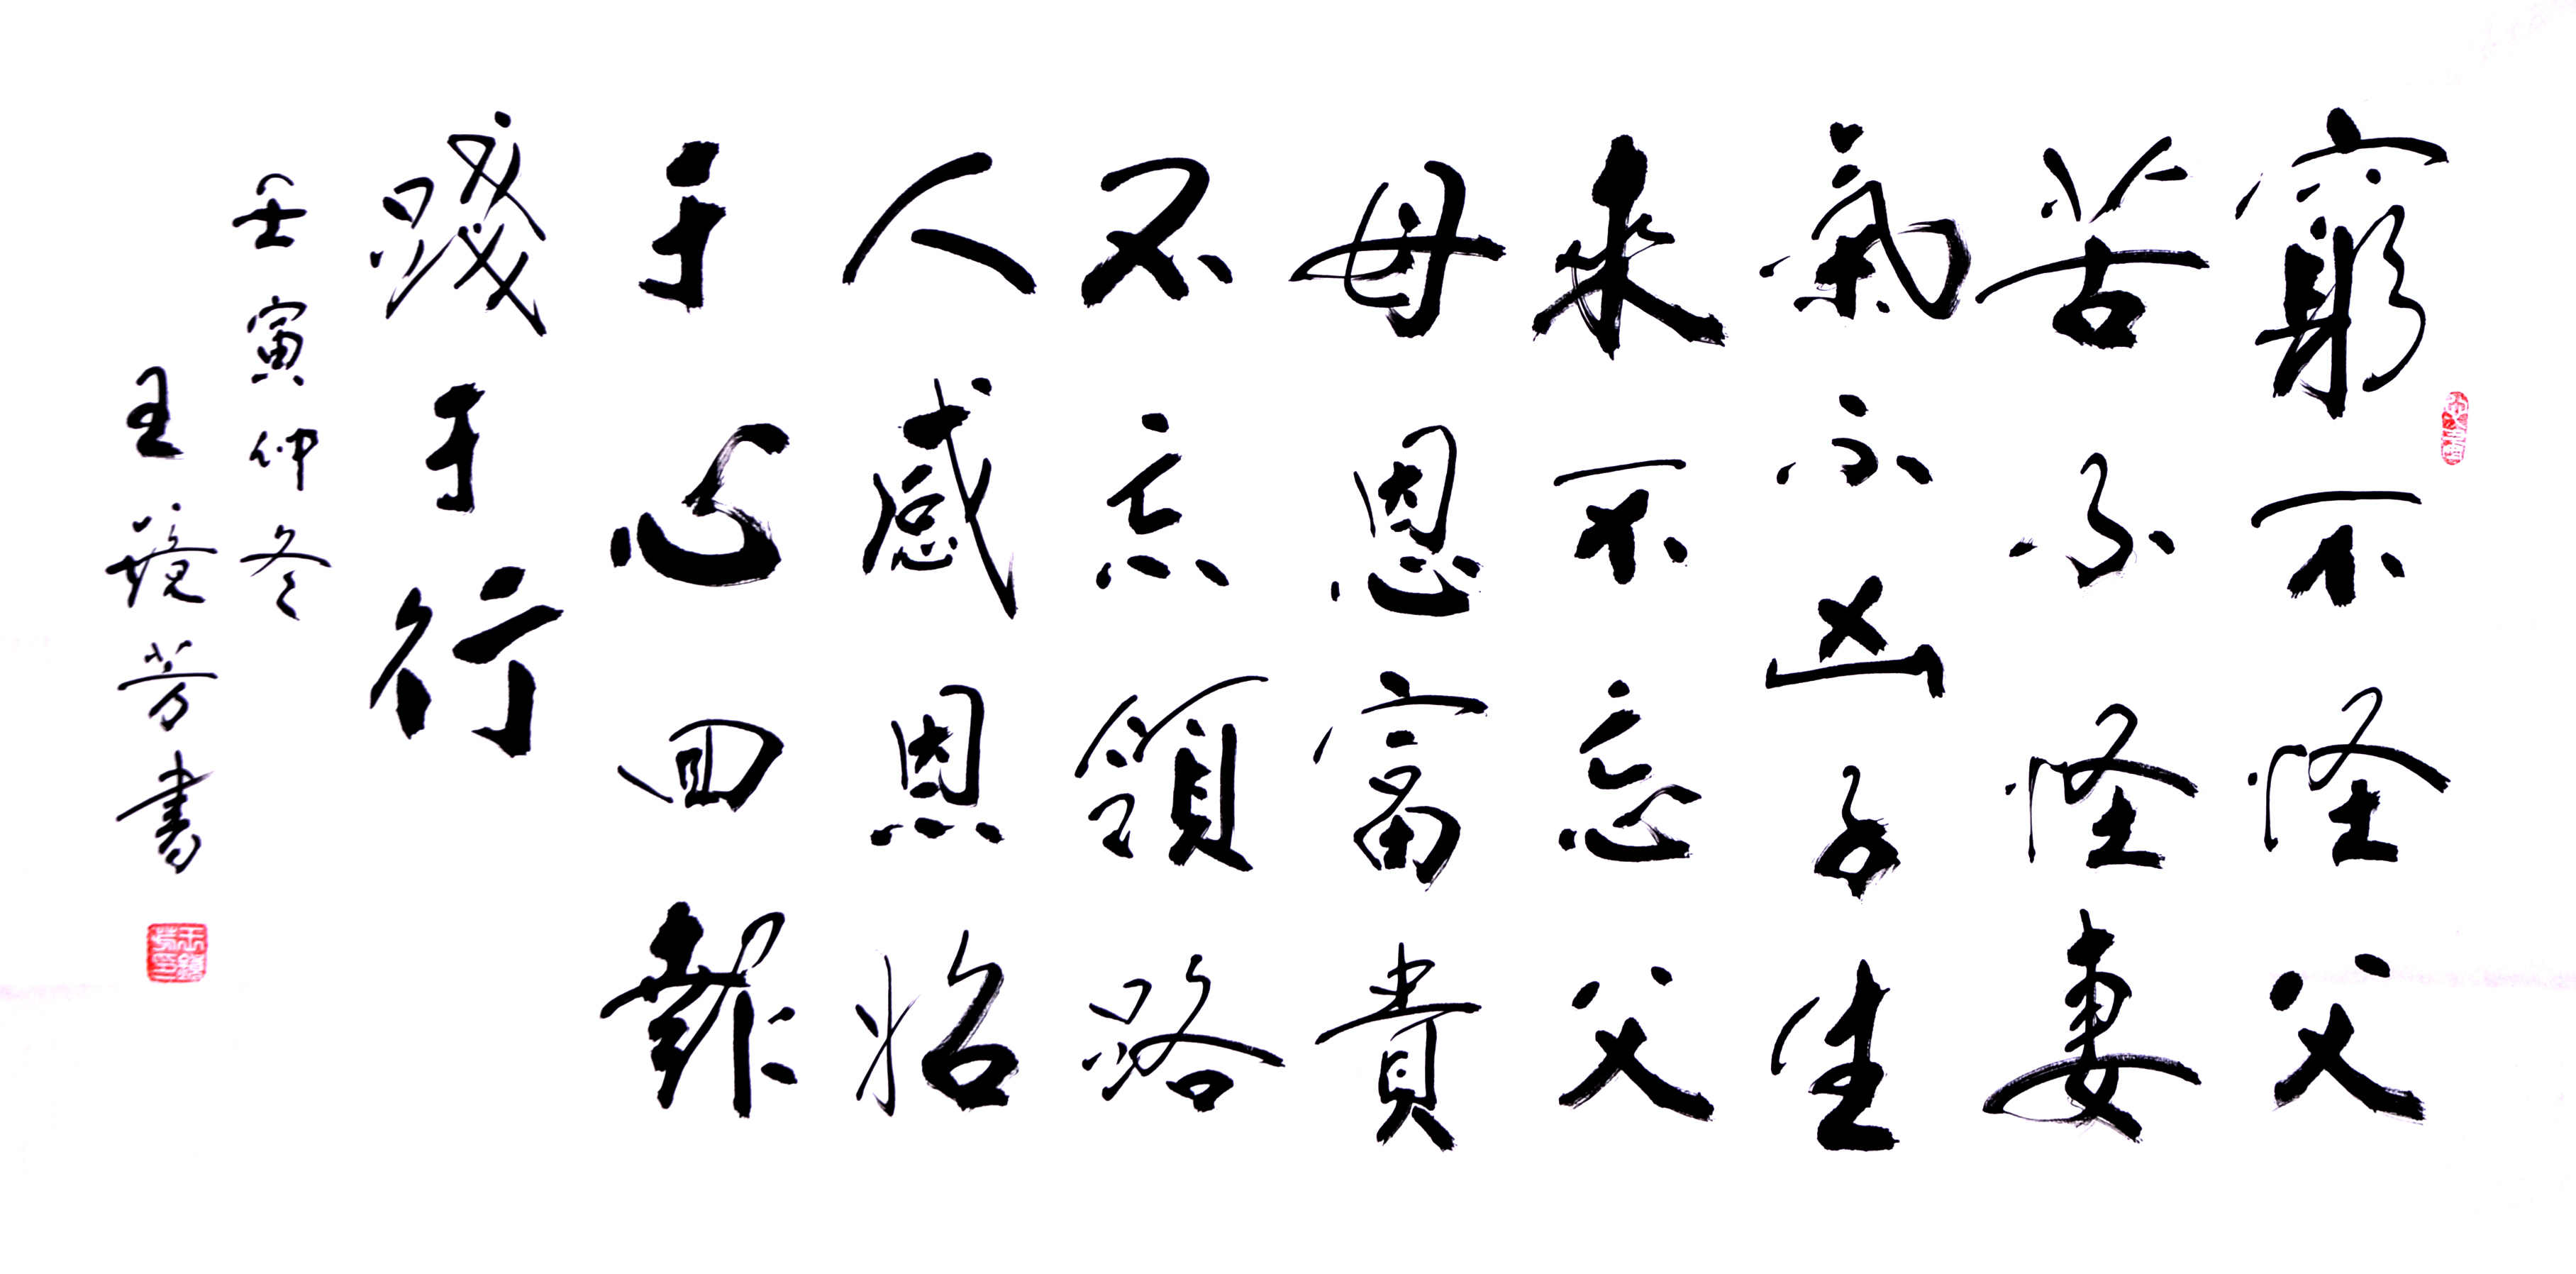 窮不怪父
苦不怪妻
氣不凶子生
來不忘父
母恩富貴
不忘領路
人感恩始
于心回報
踐于行
壬寅仲冬
王芳書